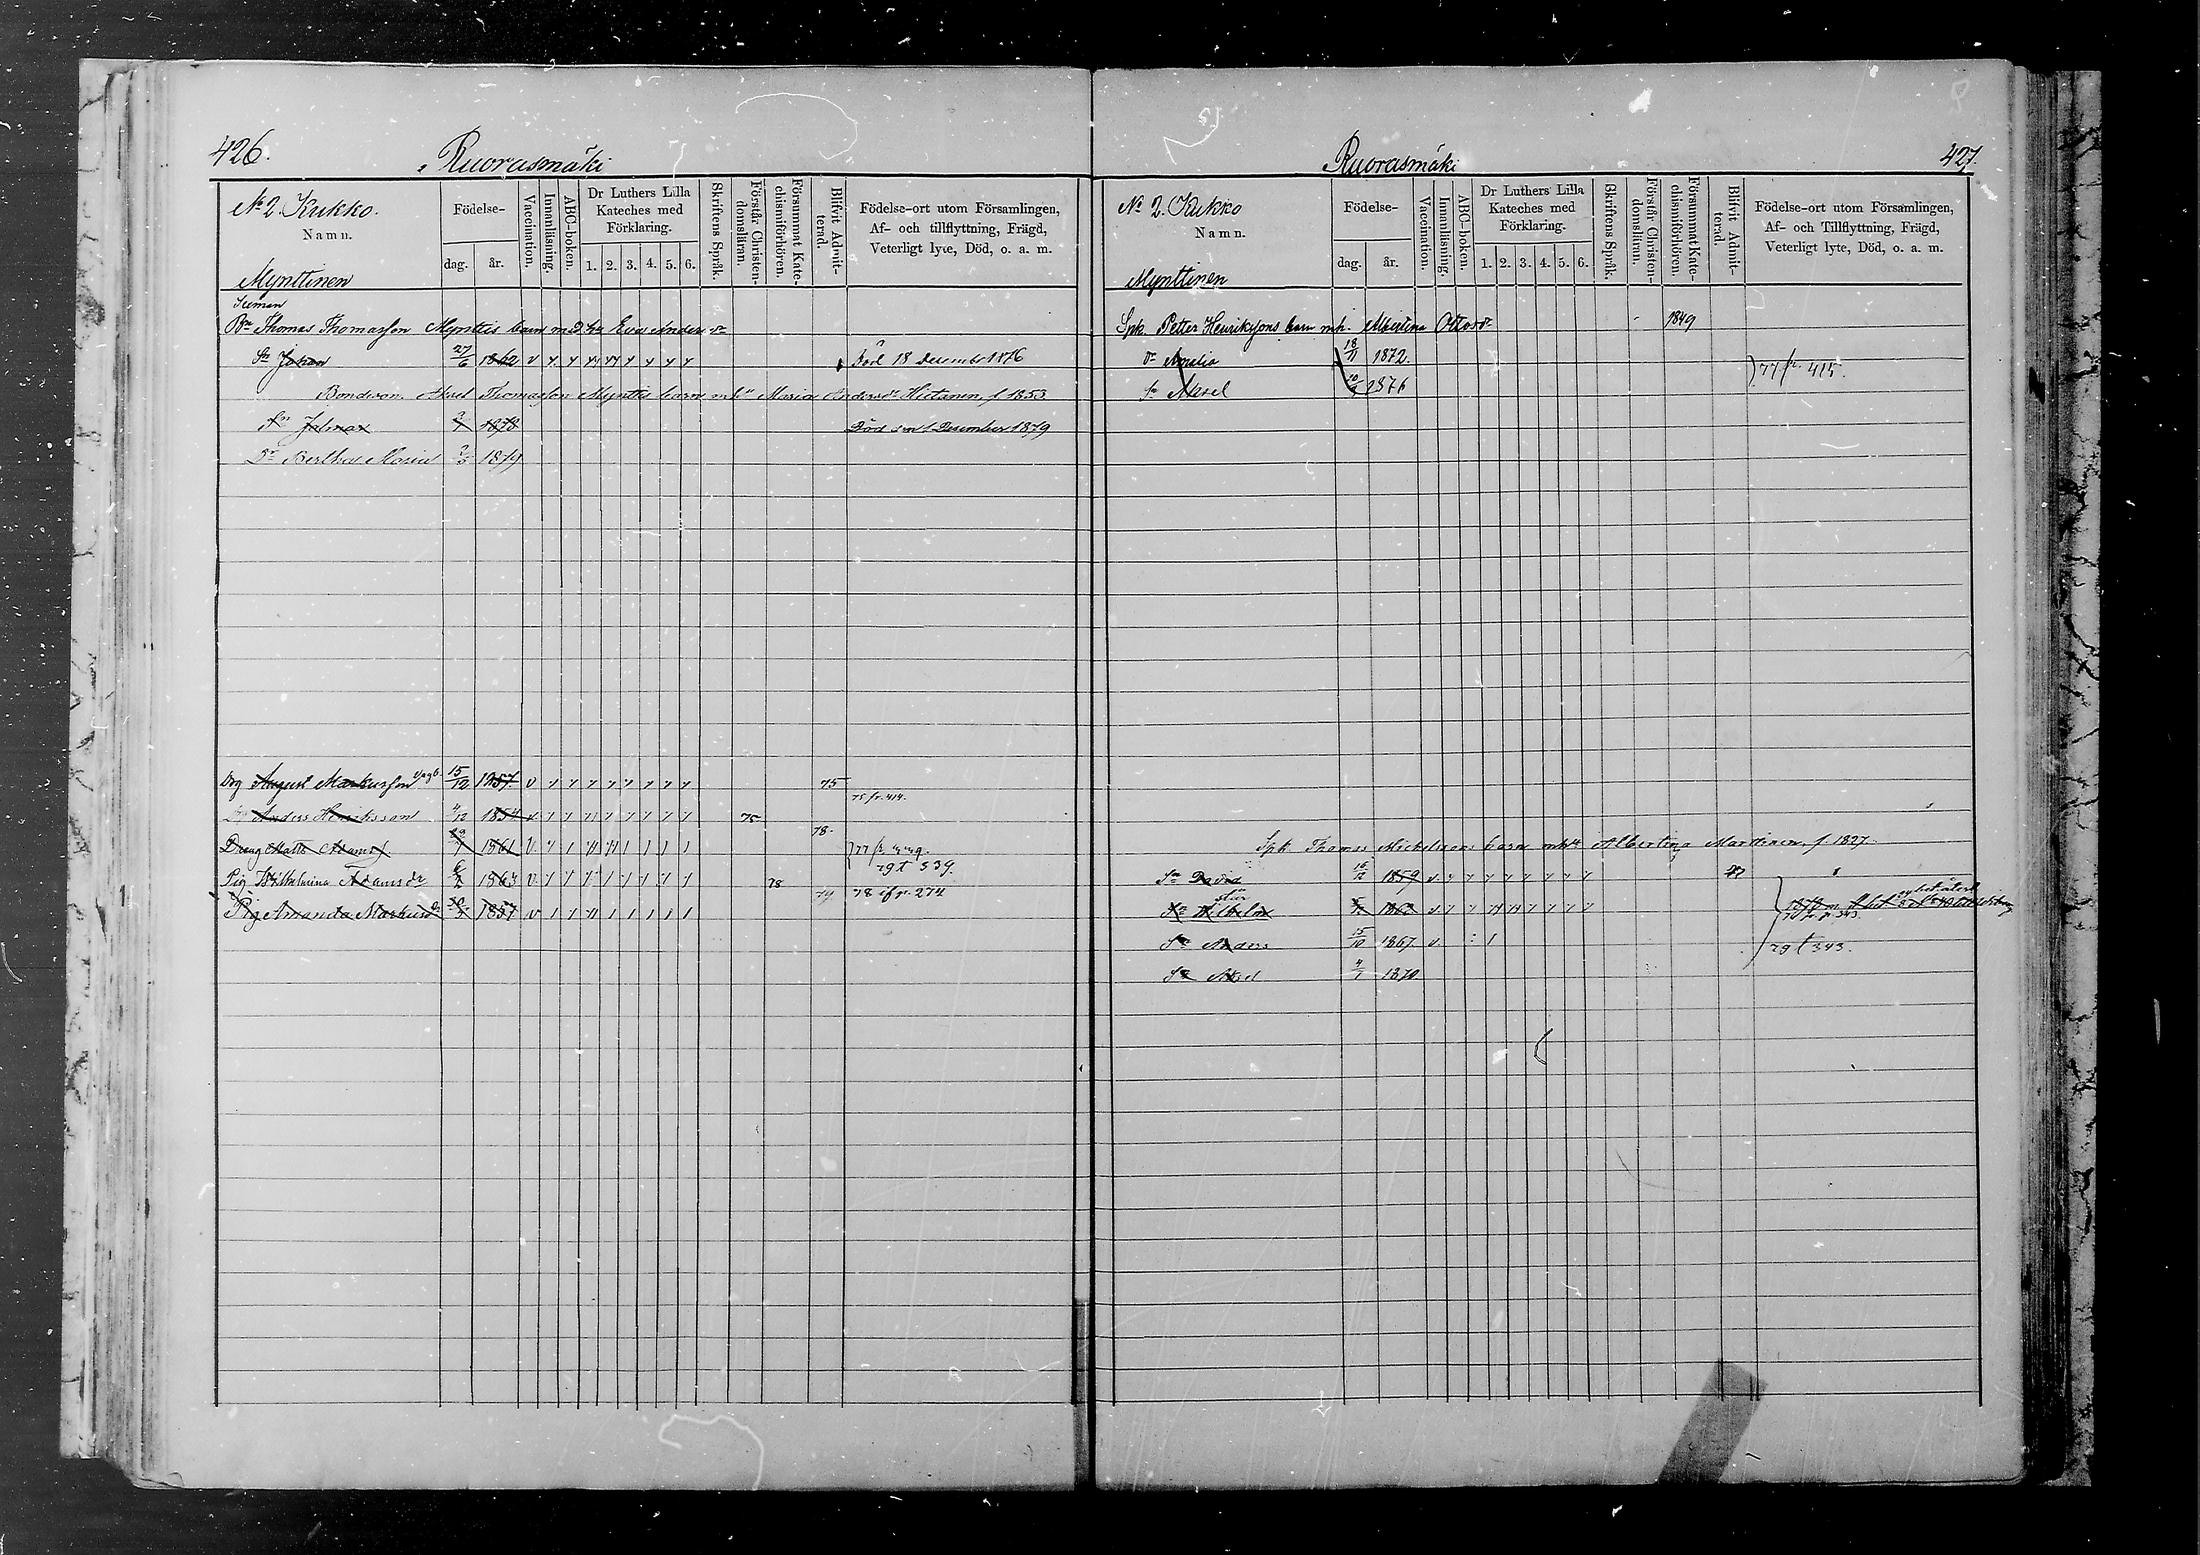 426. Ruorasmäki
No 2. Kukko.
Namn.
Mynttinen
Födelse-
dag. år.
Vaccination.
Innanläsning.
ABC-boken.
Dr Luthers Lilla
Kateches med
Förklaring.
1. 2. 3. 4. 5. 6.
Skriftens Språk.
Förstår Christen-
domsläran.
Försummat Kate-
chismiförhören.
Blifvit Admit-
terad.
Födelse-ort utom Församlingen,
Af- och tillflyttning, Frägd,
Veterligt lyte, Död, o. a. m.
Bn Thomas Thomasson Mynttis barn m 2 h Eva Anders dr
Sn Johan 27/6 1862 v Död 18 December 1876
Bondeson. Aksel Thomasson Mynttis barn m h Maria Andersdr Hietanen, f. 1853.
Sn Jalmar 1878 Död den 1 December 1879
Dr Bertha Maria 1879
Drg August Markusson 15/12 1857. v 75
75 fr. 414.
Anders Henriksson 4/12 1854 v 75
78.
Dreng Matts Adamss. 1861 V.
79 t 339.
Pig Wilhelmina Adamsdr 1863 v. 78
79 78 if fr. 274
Pig Amanda Markusd 1857 v
Ruorasmäki 427.
No 2. Kukko
Namn.
Mynttinen
Födelse-
dag. år.
Vaccination.
Innanläsning.
ABC-boken.
Dr Luthers Lilla
Kateches med
Förklaring.
1. 2. 3. 4. 5. 6.
Skriftens Språk.
Förstår Christen-
domsläran.
Försummat Kate-
chismiförhören.
Blifvit Admit-
terad.
Födelse-ort utom Församlingen,
Af- och Tillflyttning, Frägd,
Veterligt lyte, Död, o. a. m.
Spk. Petter Henrikssons barn mh. Albertina Ottosdr 1849
dr Amalia 18/11 1872.
77 fr. 415.
sn Aksel 1876
Spk Thomas Mickelssons barn mh Albertina Marttinen, f. 1827.
Sn David 16/12 1859 v
Sn Wilhelm 1862 v
Sn Anders 15/10 1867 v.
79 t 343.
Sn Aksel 4/1 1870.